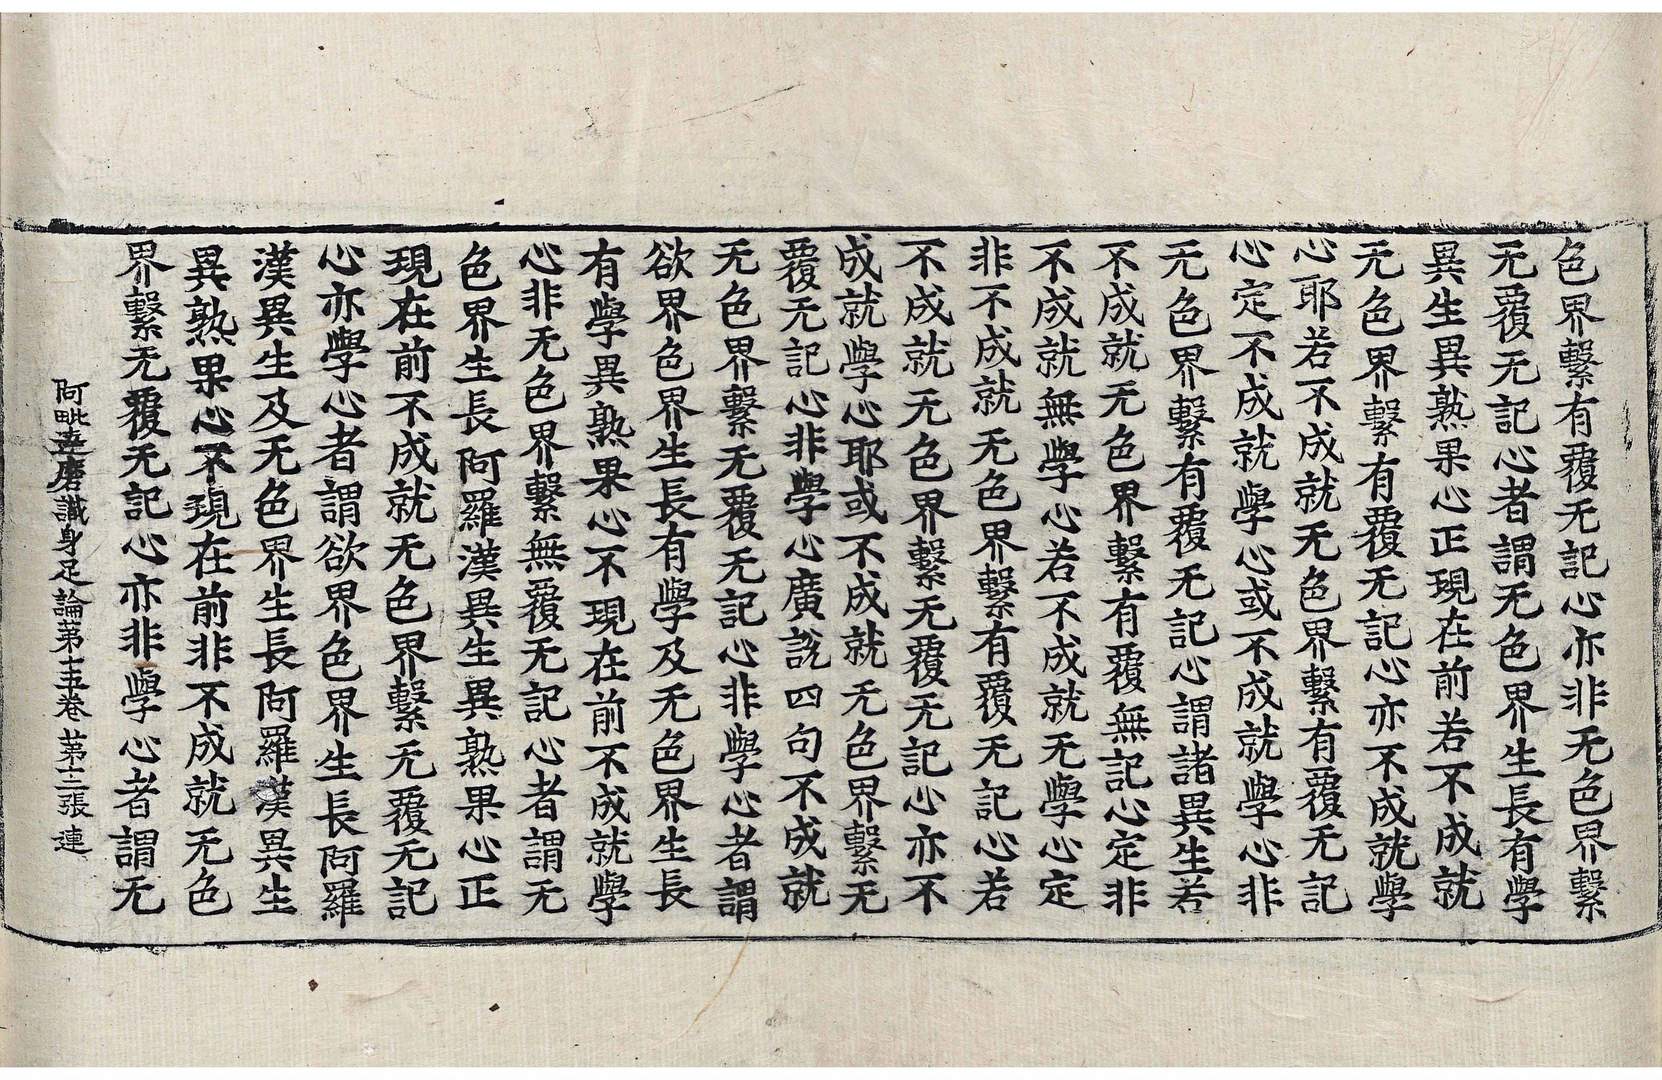 色界繫有覆无記心亦非无色界繫
无覆无記心者謂无色界生長有學
異生異熟果心正現在前若不成就
无色界繫有覆无記心亦不成就學
心耶若不成就无色界繫有覆无記
心定不成就學心或不成就學心非
无色界繫有覆无記心謂諸異生若
不成就无色界繫有覆無記心定非
不成就無學心若不成就无學心定
非不成就无色界繫有覆无記心若
不成就无色界繫无覆无記心亦不
成就學心耶或不成就无色界繫无
覆无記心非學心廣說四句不成就
无色界繫无覆无記心非學心者謂
欲界色界生長有學及无色界生長
有學異熟果心不現在前不成就學
心非无色界繫無覆无記心者謂无
色界生長阿羅漢異生異熟果心正
現在前不成就无色界繫无覆无記
心亦學心者謂欲界色界生長阿羅
漢異生及无色界生長阿羅漢異生
異熟果心不現在前非不成就无色
界繫无覆无記心亦非學心者謂无
阿毗達磨識身足論第十五卷 第十二張 連